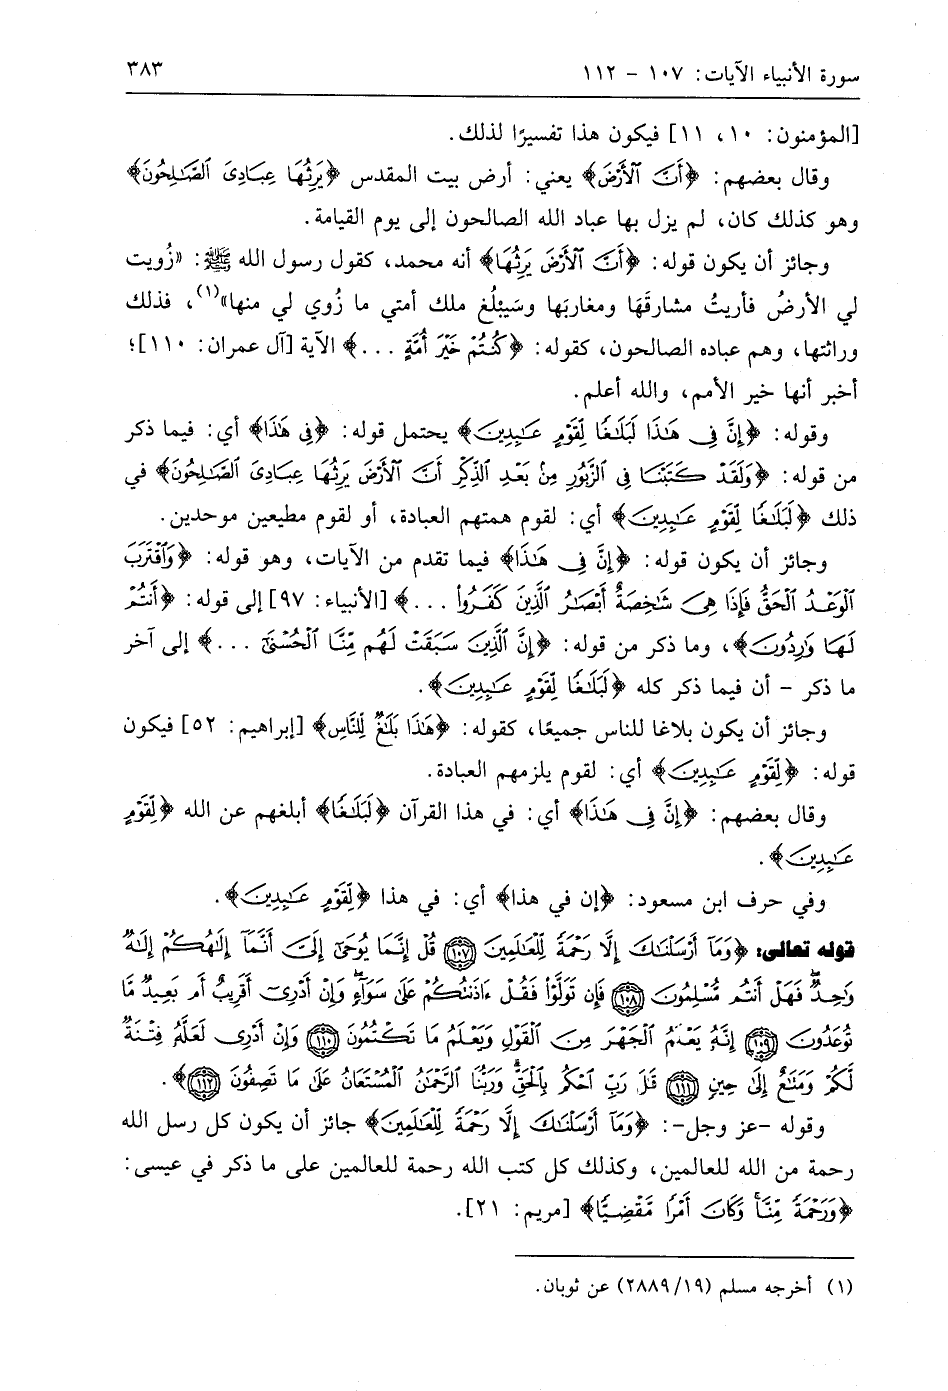 سورة الأنبياء الآيات: ١٠٧ - ١١٢
٣٨٣
[المؤمنون: ١٠، ١١] فيكون هذا تفسيرًا لذلك.
وقال بعضهم: ﴿أَنَّ ٱلْأَرْضَ﴾ يعني: أرض بيت المقدس ﴿يَرِثُهَا عِبَادِىَ ٱلصَّٰلِحُونَ﴾
وهو كذلك كان، لم يزل بها عباد الله الصالحون إلى يوم القيامة.
وجائز أن يكون قوله: ﴿أَنَّ ٱلْأَرْضَ يَرِثُهَا﴾ أنه محمد، كقول رسول الله ﷺ: «زُويت
لي الأرضُ فأريتُ مشارقَهَا ومغاربَها وسَيبْلُغ ملك أمتي ما زُوي لي منها»(١)، فذلك
وراثتها، وهم عباده الصالحون، كقوله: ﴿كُنتُمْ خَيْرَ أُمَّةٍ ...﴾ الآية [آل عمران: ١١٠]؛
أخبر أنها خير الأمم، والله أعلم.
وقوله: ﴿إِنَّ فِى هَٰذَا لَبَلَٰغًا لِّقَوْمٍ عَٰبِدِينَ﴾ يحتمل قوله: ﴿فِى هَٰذَا﴾ أي: فيما ذكر
من قوله: ﴿وَلَقَدْ كَتَبْنَا فِى ٱلزَّبُورِ مِنۢ بَعْدِ ٱلذِّكْرِ أَنَّ ٱلْأَرْضَ يَرِثُهَا عِبَادِىَ ٱلصَّٰلِحُونَ﴾ في
ذلك ﴿لَبَلَٰغًا لِّقَوْمٍ عَٰبِدِينَ﴾ أي: لقوم همتهم العبادة، أو لقوم مطيعين موحدين.
وجائز أن يكون قوله: ﴿إِنَّ فِى هَٰذَا﴾ فيما تقدم من الآيات، وهو قوله: ﴿وَٱقْتَرَبَ
ٱلْوَعْدُ ٱلْحَقُّ فَإِذَا هِىَ شَٰخِصَةٌ أَبْصَٰرُ ٱلَّذِينَ كَفَرُوا۟ ...﴾ [الأنبياء: ٩٧] إلى قوله: ﴿أَنتُمْ
لَهَا وَٰرِدُونَ﴾، وما ذكر من قوله: ﴿إِنَّ ٱلَّذِينَ سَبَقَتْ لَهُم مِّنَّا ٱلْحُسْنَىٰٓ ...﴾ إلى آخر
ما ذكر - أن فيما ذكر كله ﴿لَبَلَٰغًا لِّقَوْمٍ عَٰبِدِينَ﴾.
وجائز أن يكون بلاغا للناس جميعًا، كقوله: ﴿هَٰذَا بَلَٰغٌ لِّلنَّاسِ﴾ [إبراهيم: ٥٢] فيكون
قوله: ﴿لِّقَوْمٍ عَٰبِدِينَ﴾ أي: لقوم يلزمهم العبادة.
وقال بعضهم: ﴿إِنَّ فِى هَٰذَا﴾ أي: في هذا القرآن ﴿لَبَلَٰغًا﴾ أبلغهم عن الله ﴿لِّقَوْمٍ
عَٰبِدِينَ﴾.
وفي حرف ابن مسعود: ﴿إن في هذا﴾ أي: في هذا ﴿لِّقَوْمٍ عَٰبِدِينَ﴾.
قوله تعالى: ﴿وَمَآ أَرْسَلْنَٰكَ إِلَّا رَحْمَةً لِّلْعَٰلَمِينَ ﴿١٠٧﴾ قُلْ إِنَّمَا يُوحَىٰٓ إِلَىَّ أَنَّمَآ إِلَٰهُكُمْ إِلَٰهٌ
وَٰحِدٌ ۖ فَهَلْ أَنتُم مُّسْلِمُونَ ﴿١٠٨﴾ فَإِن تَوَلَّوْا۟ فَقُلْ ءَاذَنتُكُمْ عَلَىٰ سَوَآءٍ ۖ وَإِنْ أَدْرِىٓ أَقَرِيبٌ أَم بَعِيدٌ مَّا
تُوعَدُونَ ﴿١٠٩﴾ إِنَّهُۥ يَعْلَمُ ٱلْجَهْرَ مِنَ ٱلْقَوْلِ وَيَعْلَمُ مَا تَكْتُمُونَ ﴿١١٠﴾ وَإِنْ أَدْرِى لَعَلَّهُۥ فِتْنَةٌ
لَّكُمْ وَمَتَٰعٌ إِلَىٰ حِينٍ ﴿١١١﴾ قَٰلَ رَبِّ ٱحْكُم بِٱلْحَقِّ ۗ وَرَبُّنَا ٱلرَّحْمَٰنُ ٱلْمُسْتَعَانُ عَلَىٰ مَا تَصِفُونَ ﴿١١٢﴾﴾.
وقوله -عز وجل-: ﴿وَمَآ أَرْسَلْنَٰكَ إِلَّا رَحْمَةً لِّلْعَٰلَمِينَ﴾ جائز أن يكون كل رسل الله
رحمة من الله للعالمين، وكذلك كل كتب الله رحمة للعالمين على ما ذكر في عيسى:
﴿وَرَحْمَةً مِّنَّا ۚ وَكَانَ أَمْرًا مَّقْضِيًّا﴾ [مريم: ٢١].
(١) أخرجه مسلم (٢٨٨٩/١٩) عن ثوبان.